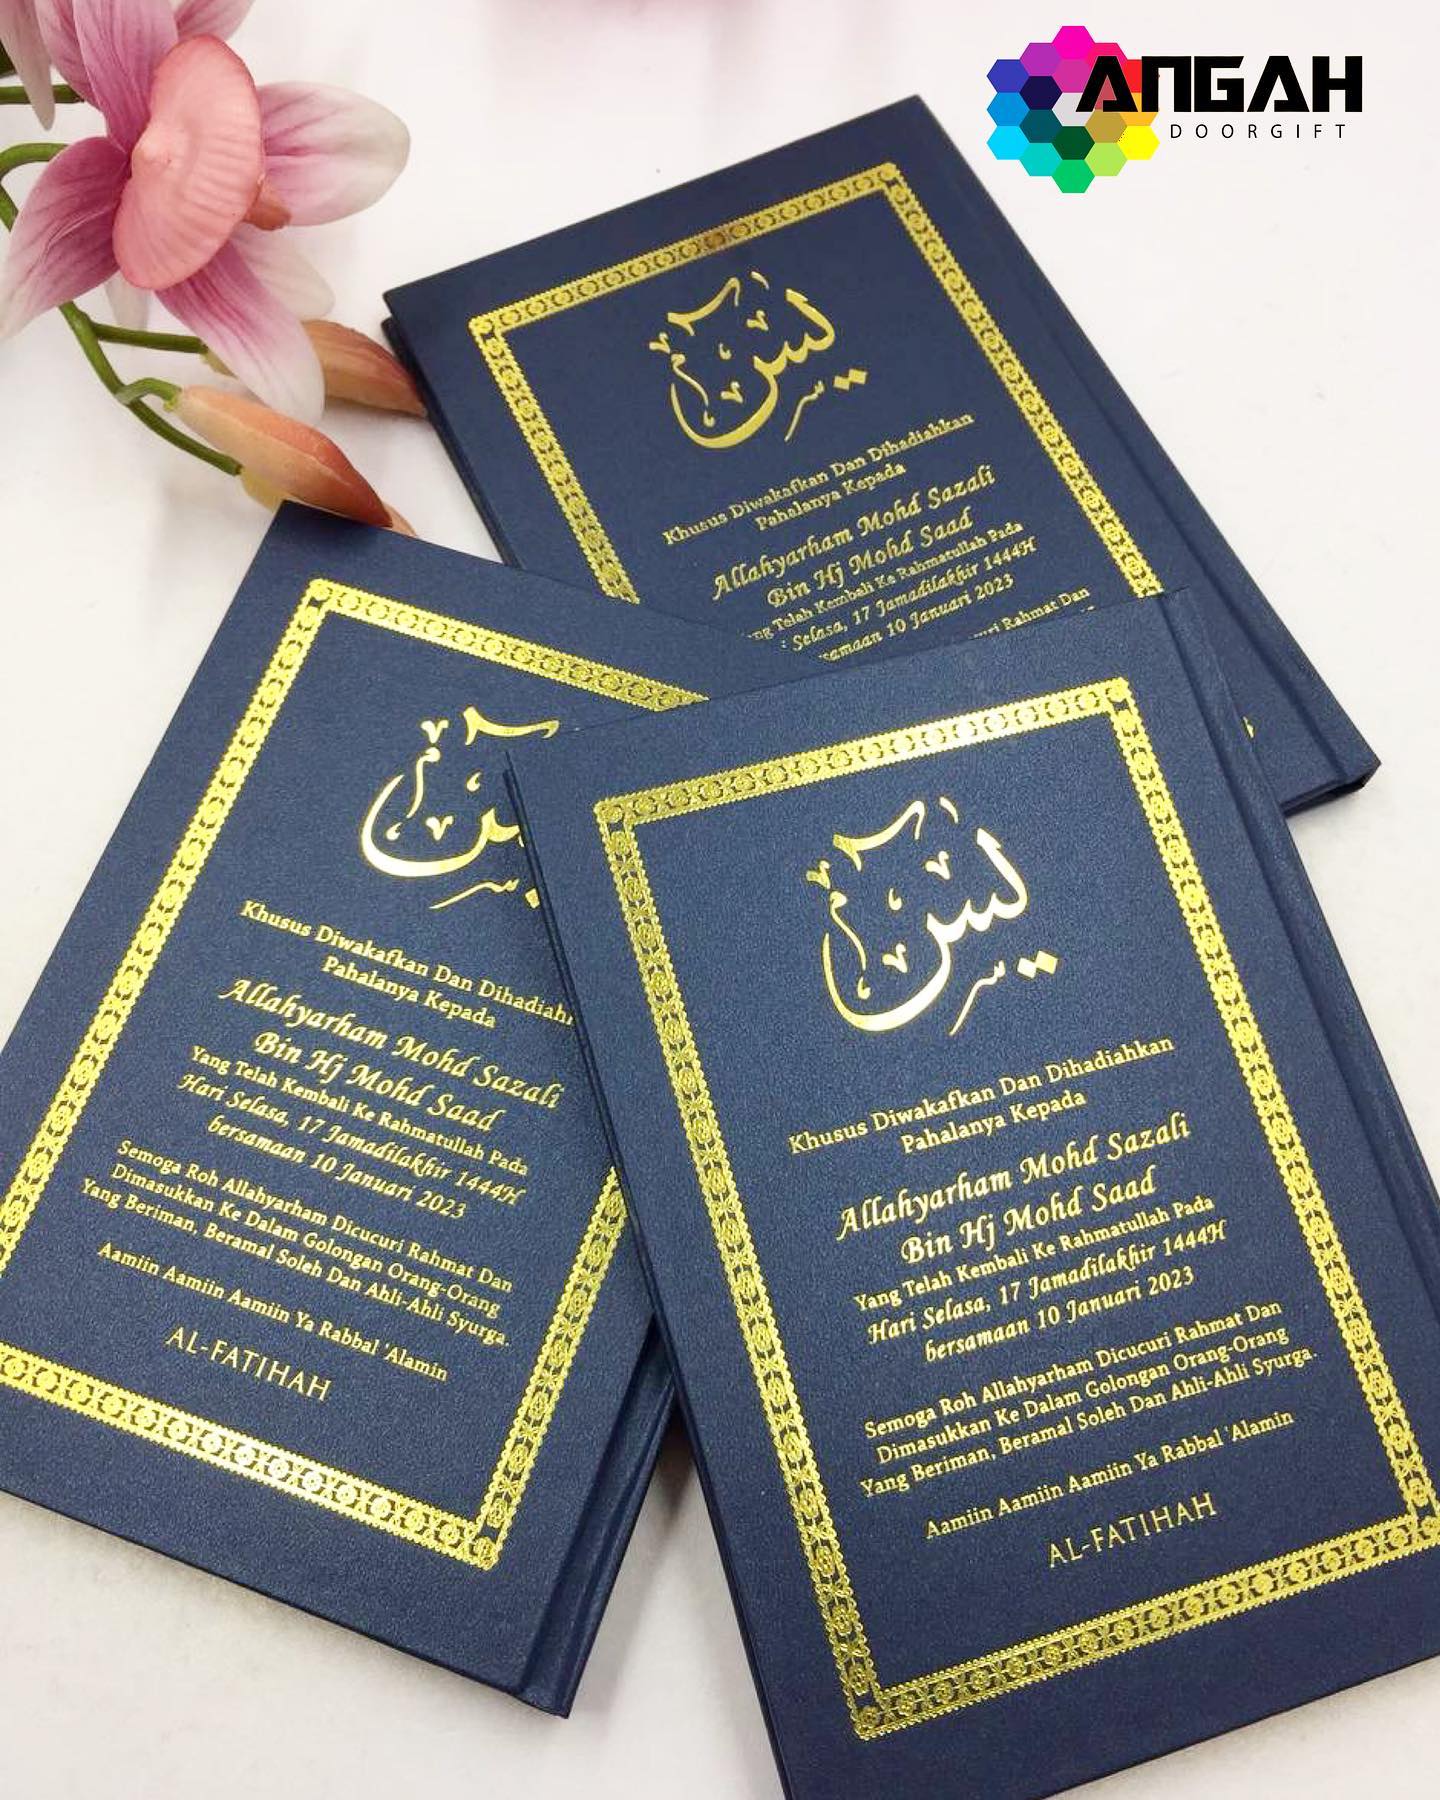 ANGAH
DOORGIFT
يس
Khusus Diwakafkan Dan Dihadiahkan
Pahalanya Kepada
Allahyarham Mohd Sazali
Bin Hj Mohd Saad
Telah Kembali Ke Rahmatullah Pada
Selasa, 17 Jamadilakhir 1444H
10 Januari 2023
Rahmat Dan
Khusus Diwakafkan Dan
Pahalanya Kepada
Allahyarham Mohd Sazali
Bin Hj Mohd Saad
Yang Telah Kembali Ke Rahmatullah Pada
Hari Selasa, 17 Jamadilakhir 1444H
bersamaan 10 Januari 2023
Semoga Roh Allahyarham Dicucuri Rahmat Dan
Dimasukkan Ke Dalam Golongan Orang-Orang
Yang Beriman, Beramal Soleh Dan Ahli-Ahli Syurga.
Aamiin Aamiin Aamiin Ya Rabbal 'Alamin
AL-FATIHAH
يس
Khusus Diwakafkan Dan Dihadiahkan
Pahalanya Kepada
Allahyarham Mohd Sazali
Bin Hj Mohd Saad
Yang Telah Kembali Ke Rahmatullah Pada
Hari Selasa, 17 Jamadilakhir 1444H
bersamaan 10 Januari 2023
Semoga Roh Allahyarham Dicucuri Rahmat Dan
Dimasukkan Ke Dalam Golongan Orang-Orang
Yang Beriman, Beramal Soleh Dan Ahli-Ahli Syurga.
Aamiin Aamiin Aamiin Ya Rabbal 'Alamin
AL-FATIHAH